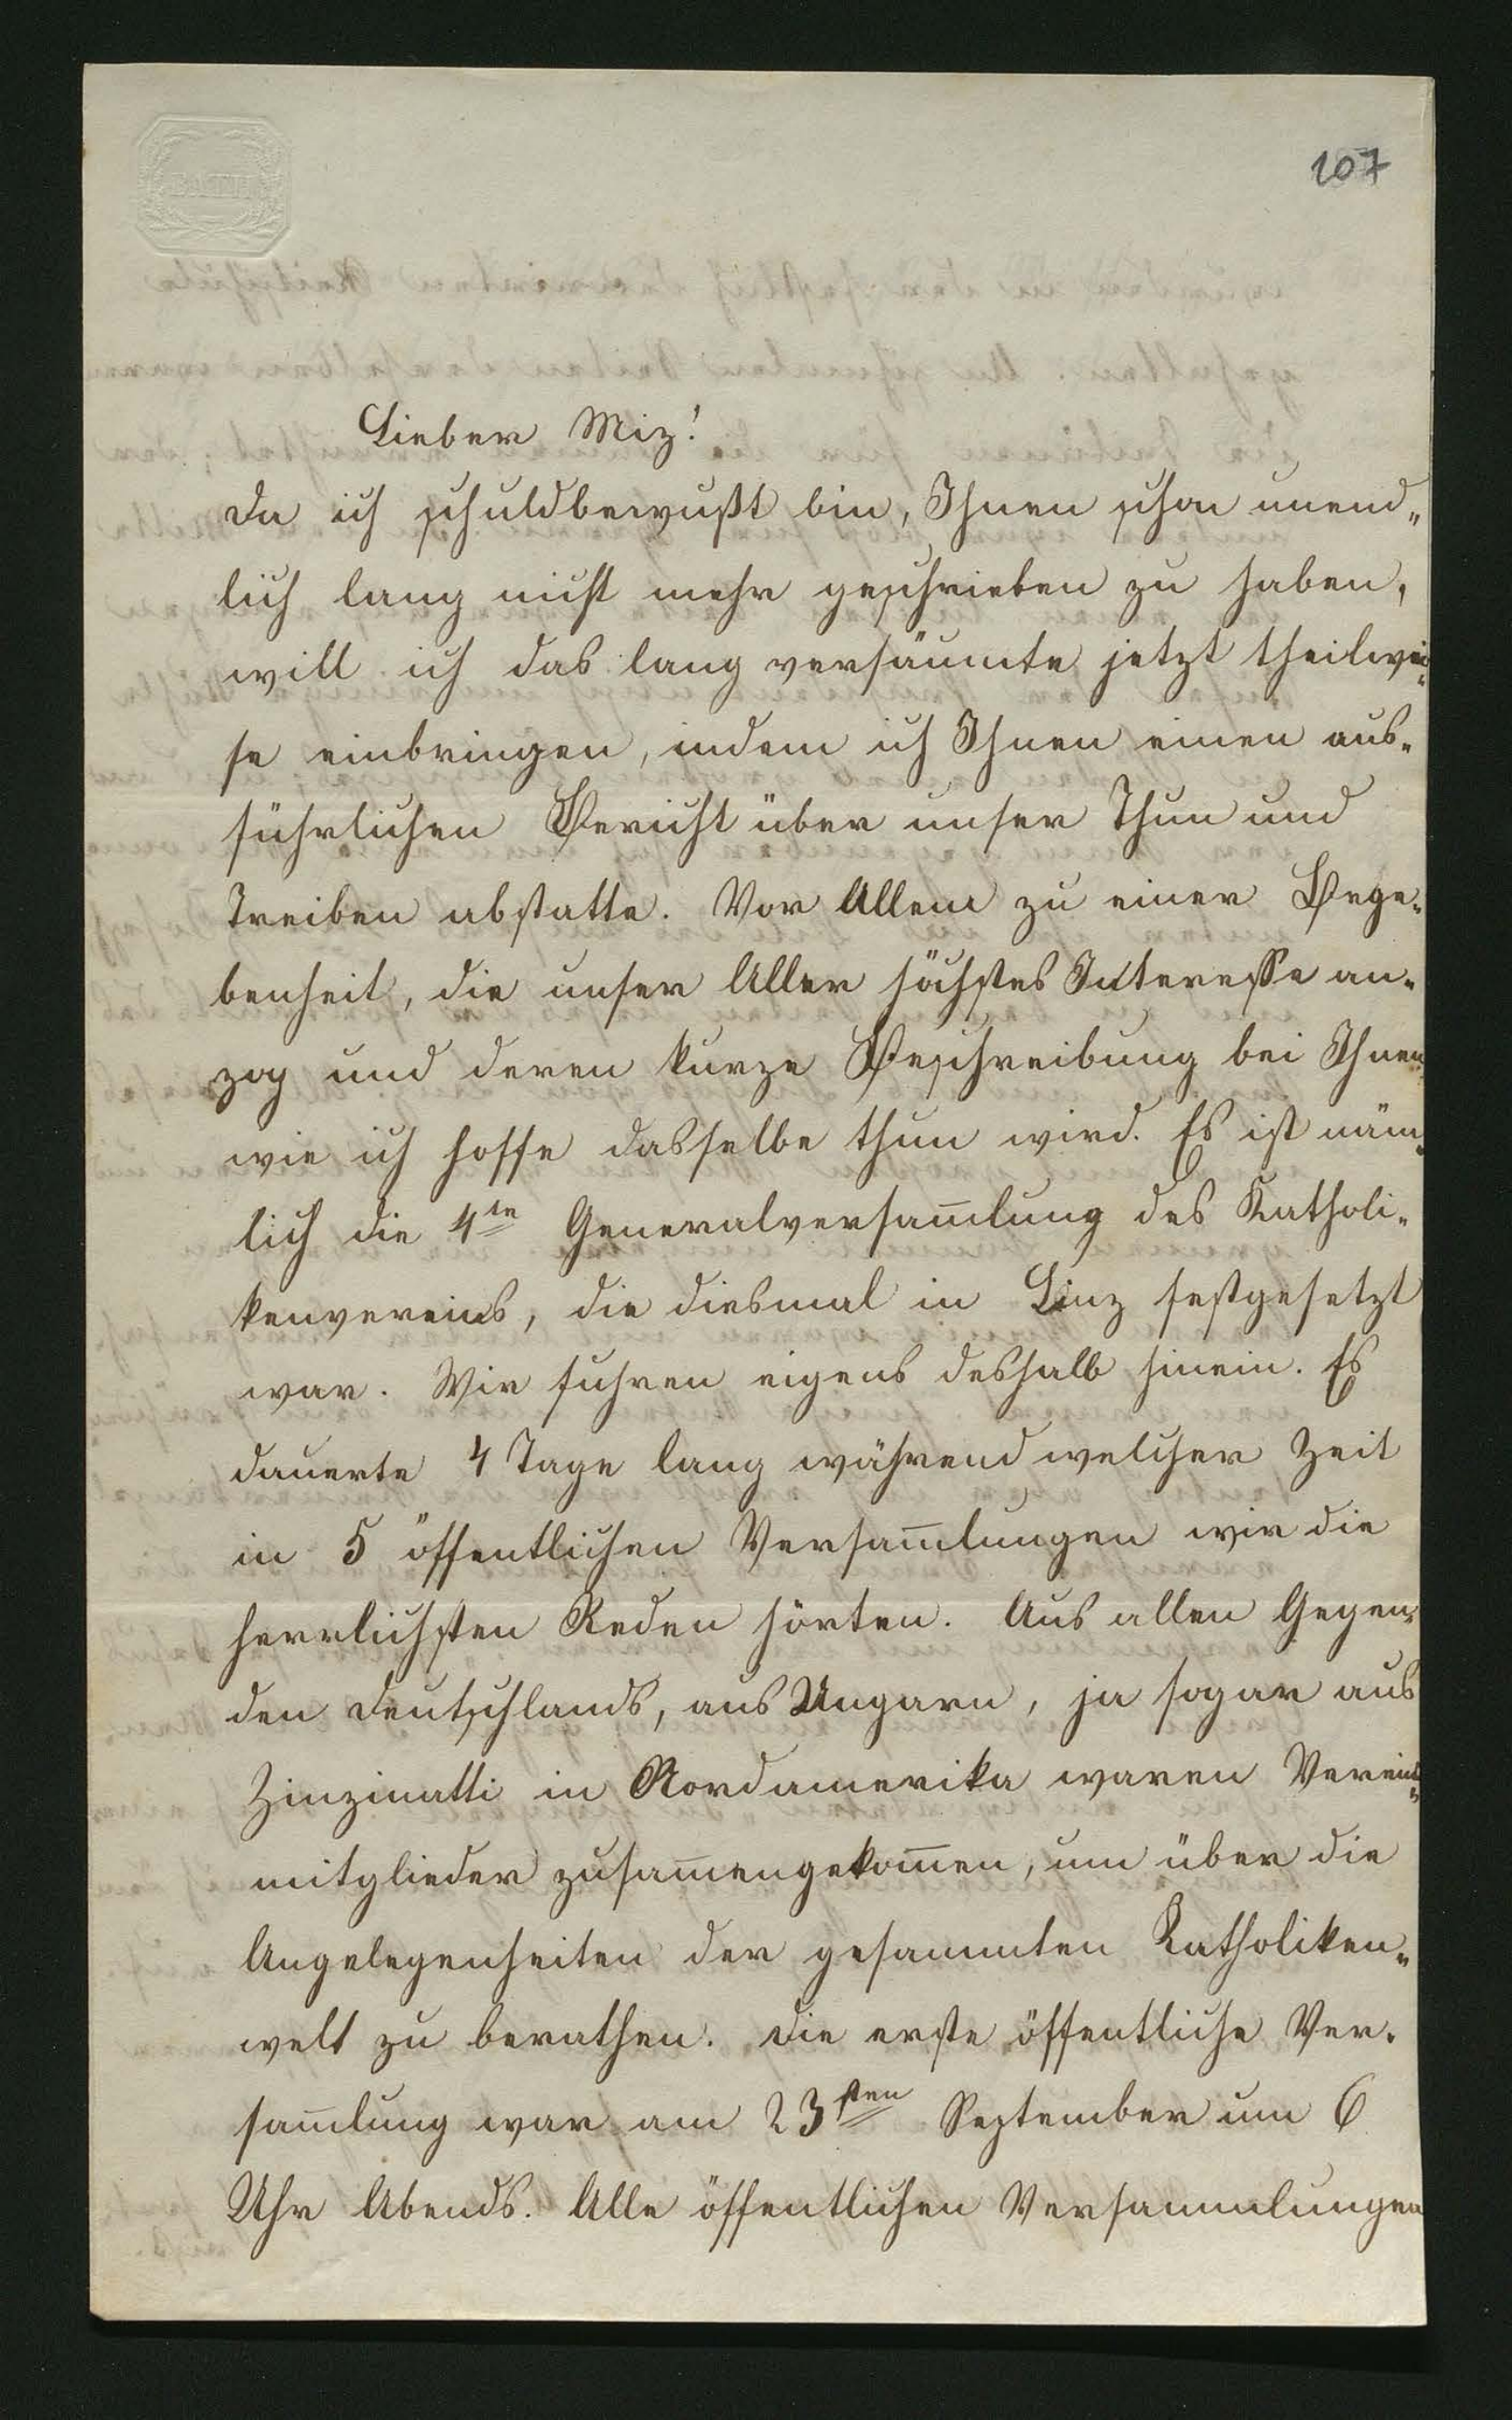 BATH
107
Lieber Miz!
Da ich schuldbewußt bin, Ihnen schon unend„
lich lang nicht mehr geschrieben zu haben,
will ich das lang versäumte jetzt theilwei„
se einbringen, indem ich Ihnen einen aus„
führlichen Bericht über unser Thun und
Treiben abstatte. Vor Allem zu einer Bege„
benheit, die unser Aller höchstes Interesse an„
zog und deren kurze Beschreibung bei Ihnen
wie ich hoffe dasselbe thun wird. Es ist näm„
lich die 4te Generalversam̅lung des Katholi„
kenvereins, die diesmal in Linz festgesetzt
war. Wir fuhren eigens deshalb hinein. Es
dauerte 4 Tage lang während welcher Zeit
in 5 öffentlichen Versam̅lungen wir die
herrlichsten Reden hörten. Aus allen Gegen„
den Deutschlands, aus Ungarn, ja sogar aus
Zinzinatti in Nordamerika waren Vereins„
mitglieder zusam̅engekom̅en, um über die
Angelegenheiten der gesammten Katholiken„
welt zu berathen. Die erste öffentliche Ver„
sam̅lung war am 23sten September um 6
Uhr Abends. Alle öffentlichen Versammlungen